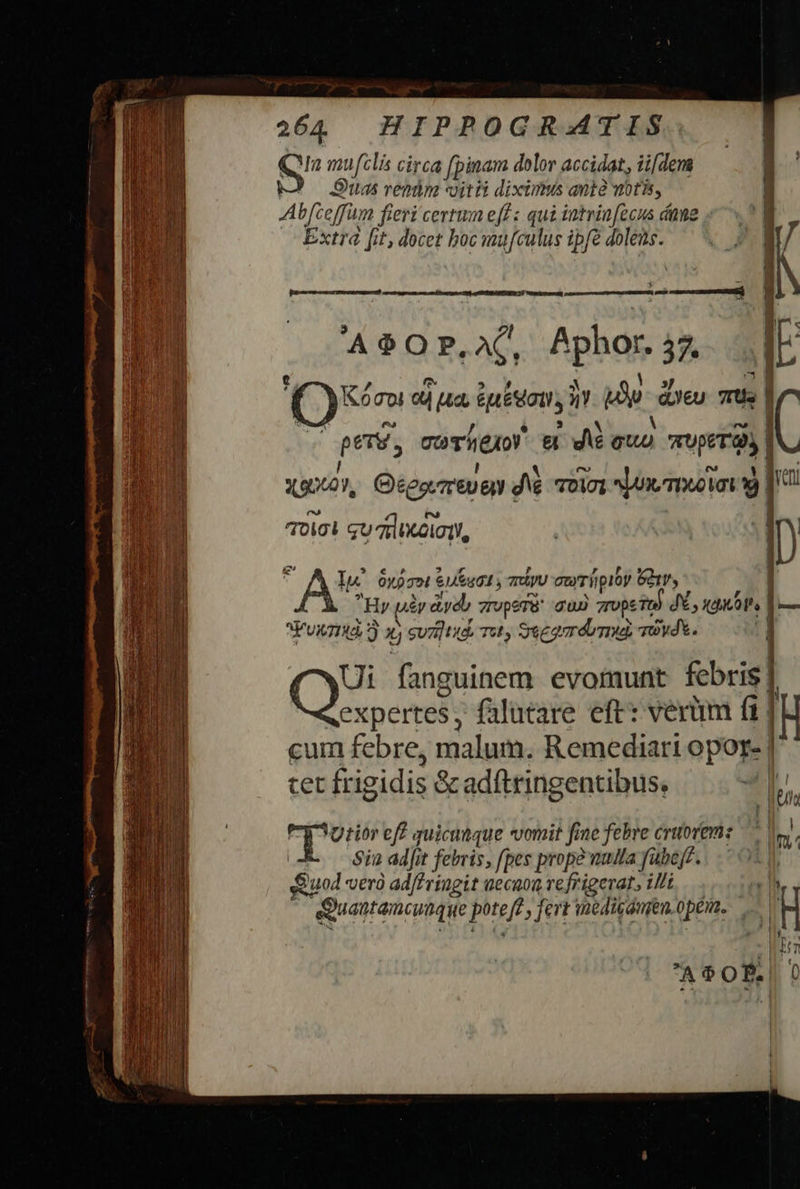 264 HIPPOCRATIS
SIn muſclis circa ſpinam dolor accidat, iiſdem
Quas renûm vitii diximus antè notis,
Abſceſſum fieri certum eſt: qui intrinſecus ánne
Extrà ſit, docet hoc muſculus ipſe dolens.
ἈΦΟΡ. λζ, Aphor. 37.
Ὁκόσοι αἷμα ἐμέουσιν, ἢν μὲν ἄνευ πυ-
ρετοῦ, σωτήριον· εἰ δὲ σὺν πυρετῷ,
κακόν, Θεραπεύειν δὲ τοῖσι ψυκτικοῖσι καὶ
τοῖσι στυπτικοῖσιν.
Αἷμ' ὁκόσοι ἐμέουσι, πάνυ σωτήριόν ἐστιν,
Ἢν μὲν ἄνευ πυρετοῦ· σὺν πυρετῷ δὲ, κακόν.
Ψυκτικὰ δὲ καὶ στυπτικά τοι, θεραπευτικὰ τῶνδε.
QUi ſanguinem evomunt febris
expertes, ſalutare eſt: verùm ſi
cum febre, malum. Remediari opor-
tet frigidis & adſtringentibus.
POtior eſt quicunque vomit ſine febre cruorem:
Sin adſit febris, ſpes propè nulla ſubeſt.
Quod verò adſtringit necnon refrigerat, illi
Quantamcunque poteſt, fert medicamen opem.
ἈΦΟΡ.